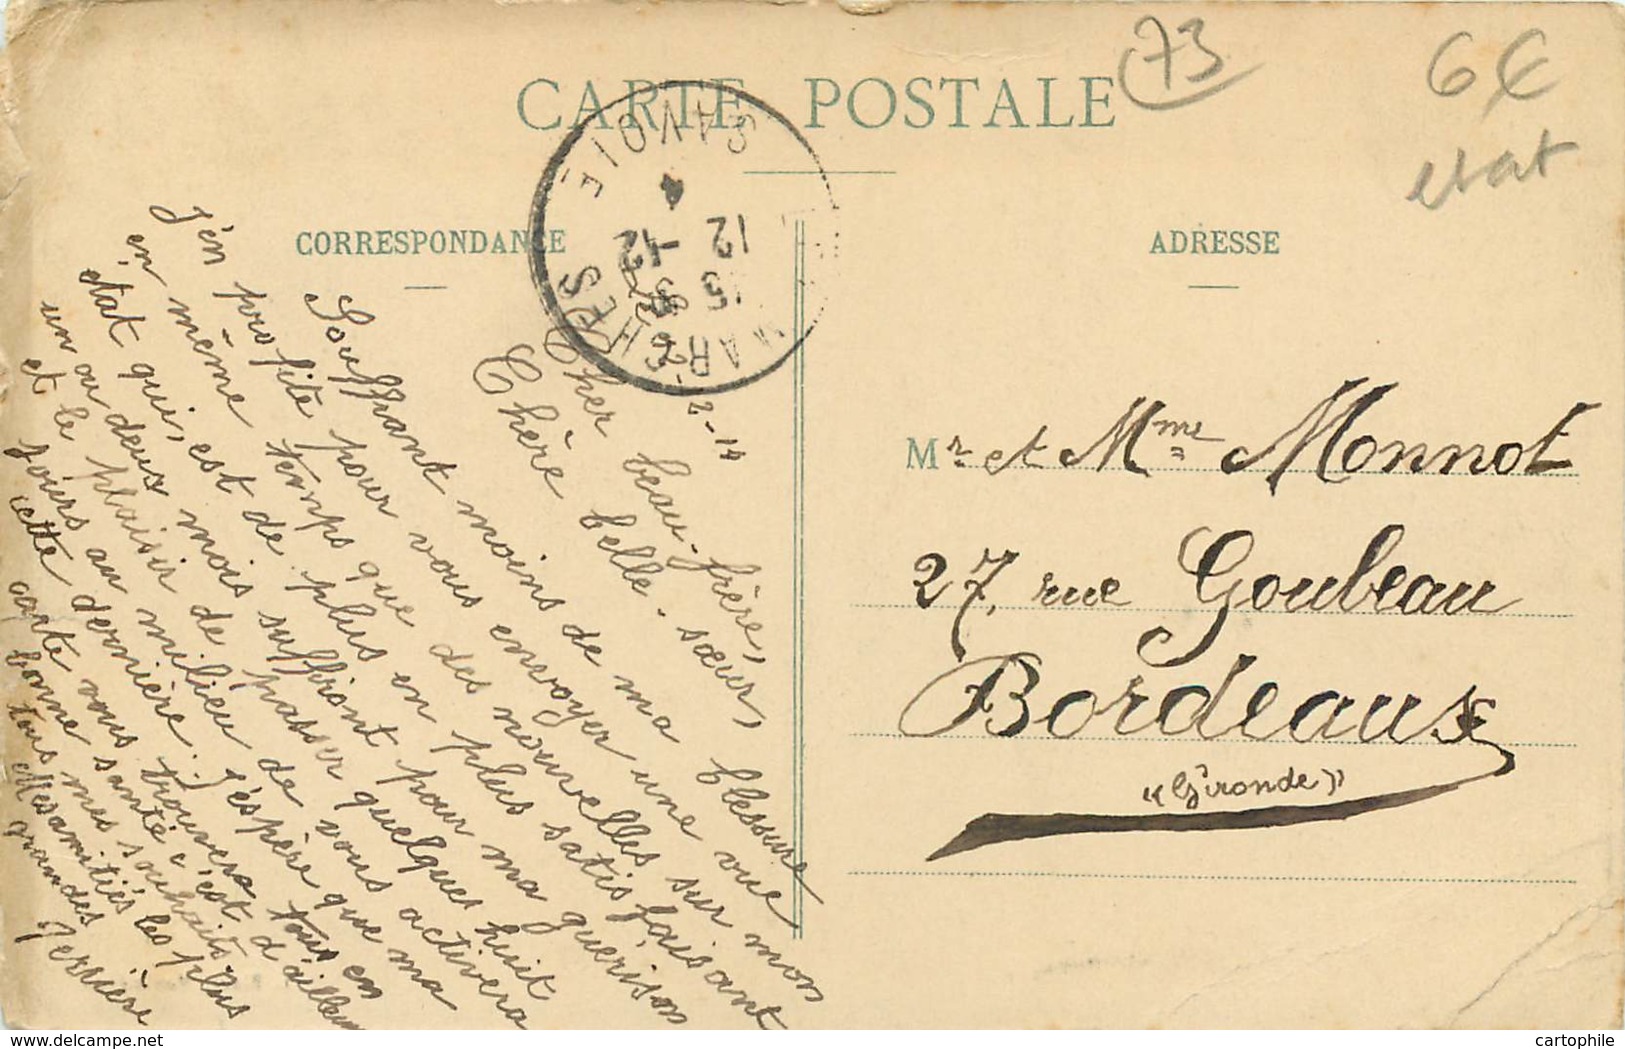 73
6€
etat
CARTE POSTALE
CORRESPONDANCE
ADRESSE
MARCHES
SAVOIE
15 -12
12
Cher beau-frère,
Chère belle-sœur,
Souffrant moins de ma blessure
j'en profite pour vous envoyer une vue
en même temps que des nouvelles sur mon
état qui, est de plus en plus satisfaisant
un ou deux mois suffiront pour ma guérison
et le plaisir de passer quelques huit
jours au milieu de vous activera
cette dernière. J'espère que ma
carte vous trouvera tous en
bonne santé c'est d'ailleurs
tous mes souhaits.
Mes amitiés les plus
grandes
Mr et Mme Monnot
27, rue Goubeau
Bordeaux
«Gironde»
www.delcampe.net
cartophile